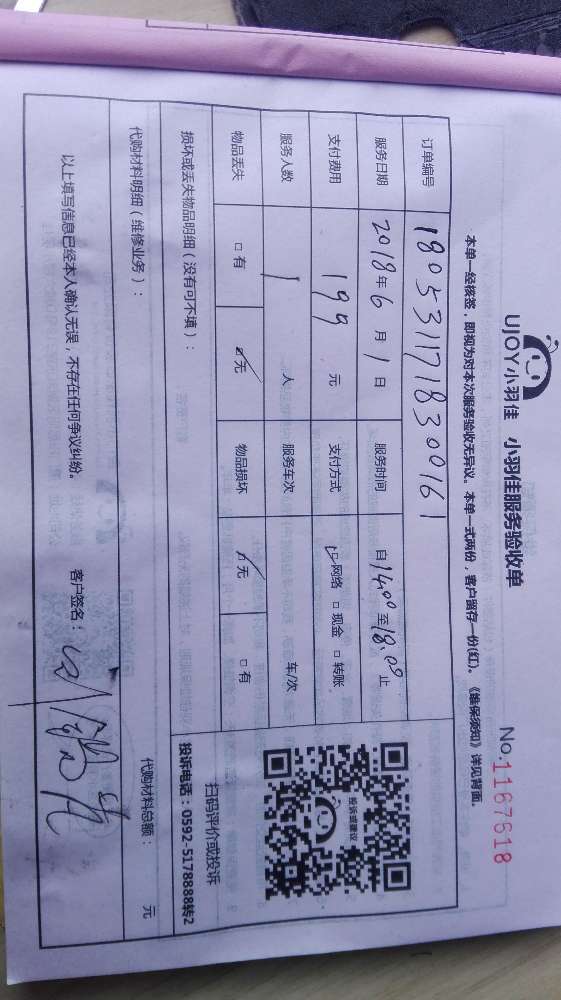 UJOY小羽佳 小羽佳服务验收单
No.1167618
本单一经核签，即视为对本次服务验收无异议。本单一式两份，客户留存一份(红)。《维保须知》详见背面。
订单编号 1805311718300161
服务日期 2018年6月1日 服务时间 自14:00至18:00止
支付费用 199 元 支付方式 ☑网络 □现金 □转账
服务人数 1 人 服务车次 车/次
物品丢失 □有 ☑无 物品损坏 ☑无 □有
投诉或建议
扫码评价或投诉
投诉电话：0592-5178888转2
损坏或丢失物品明细（没有可不填）：
代购材料明细（维修业务）： 代购材料总额： 元
以上填写信息已经本人确认无误，不存在任何争议纠纷。 客户签名：